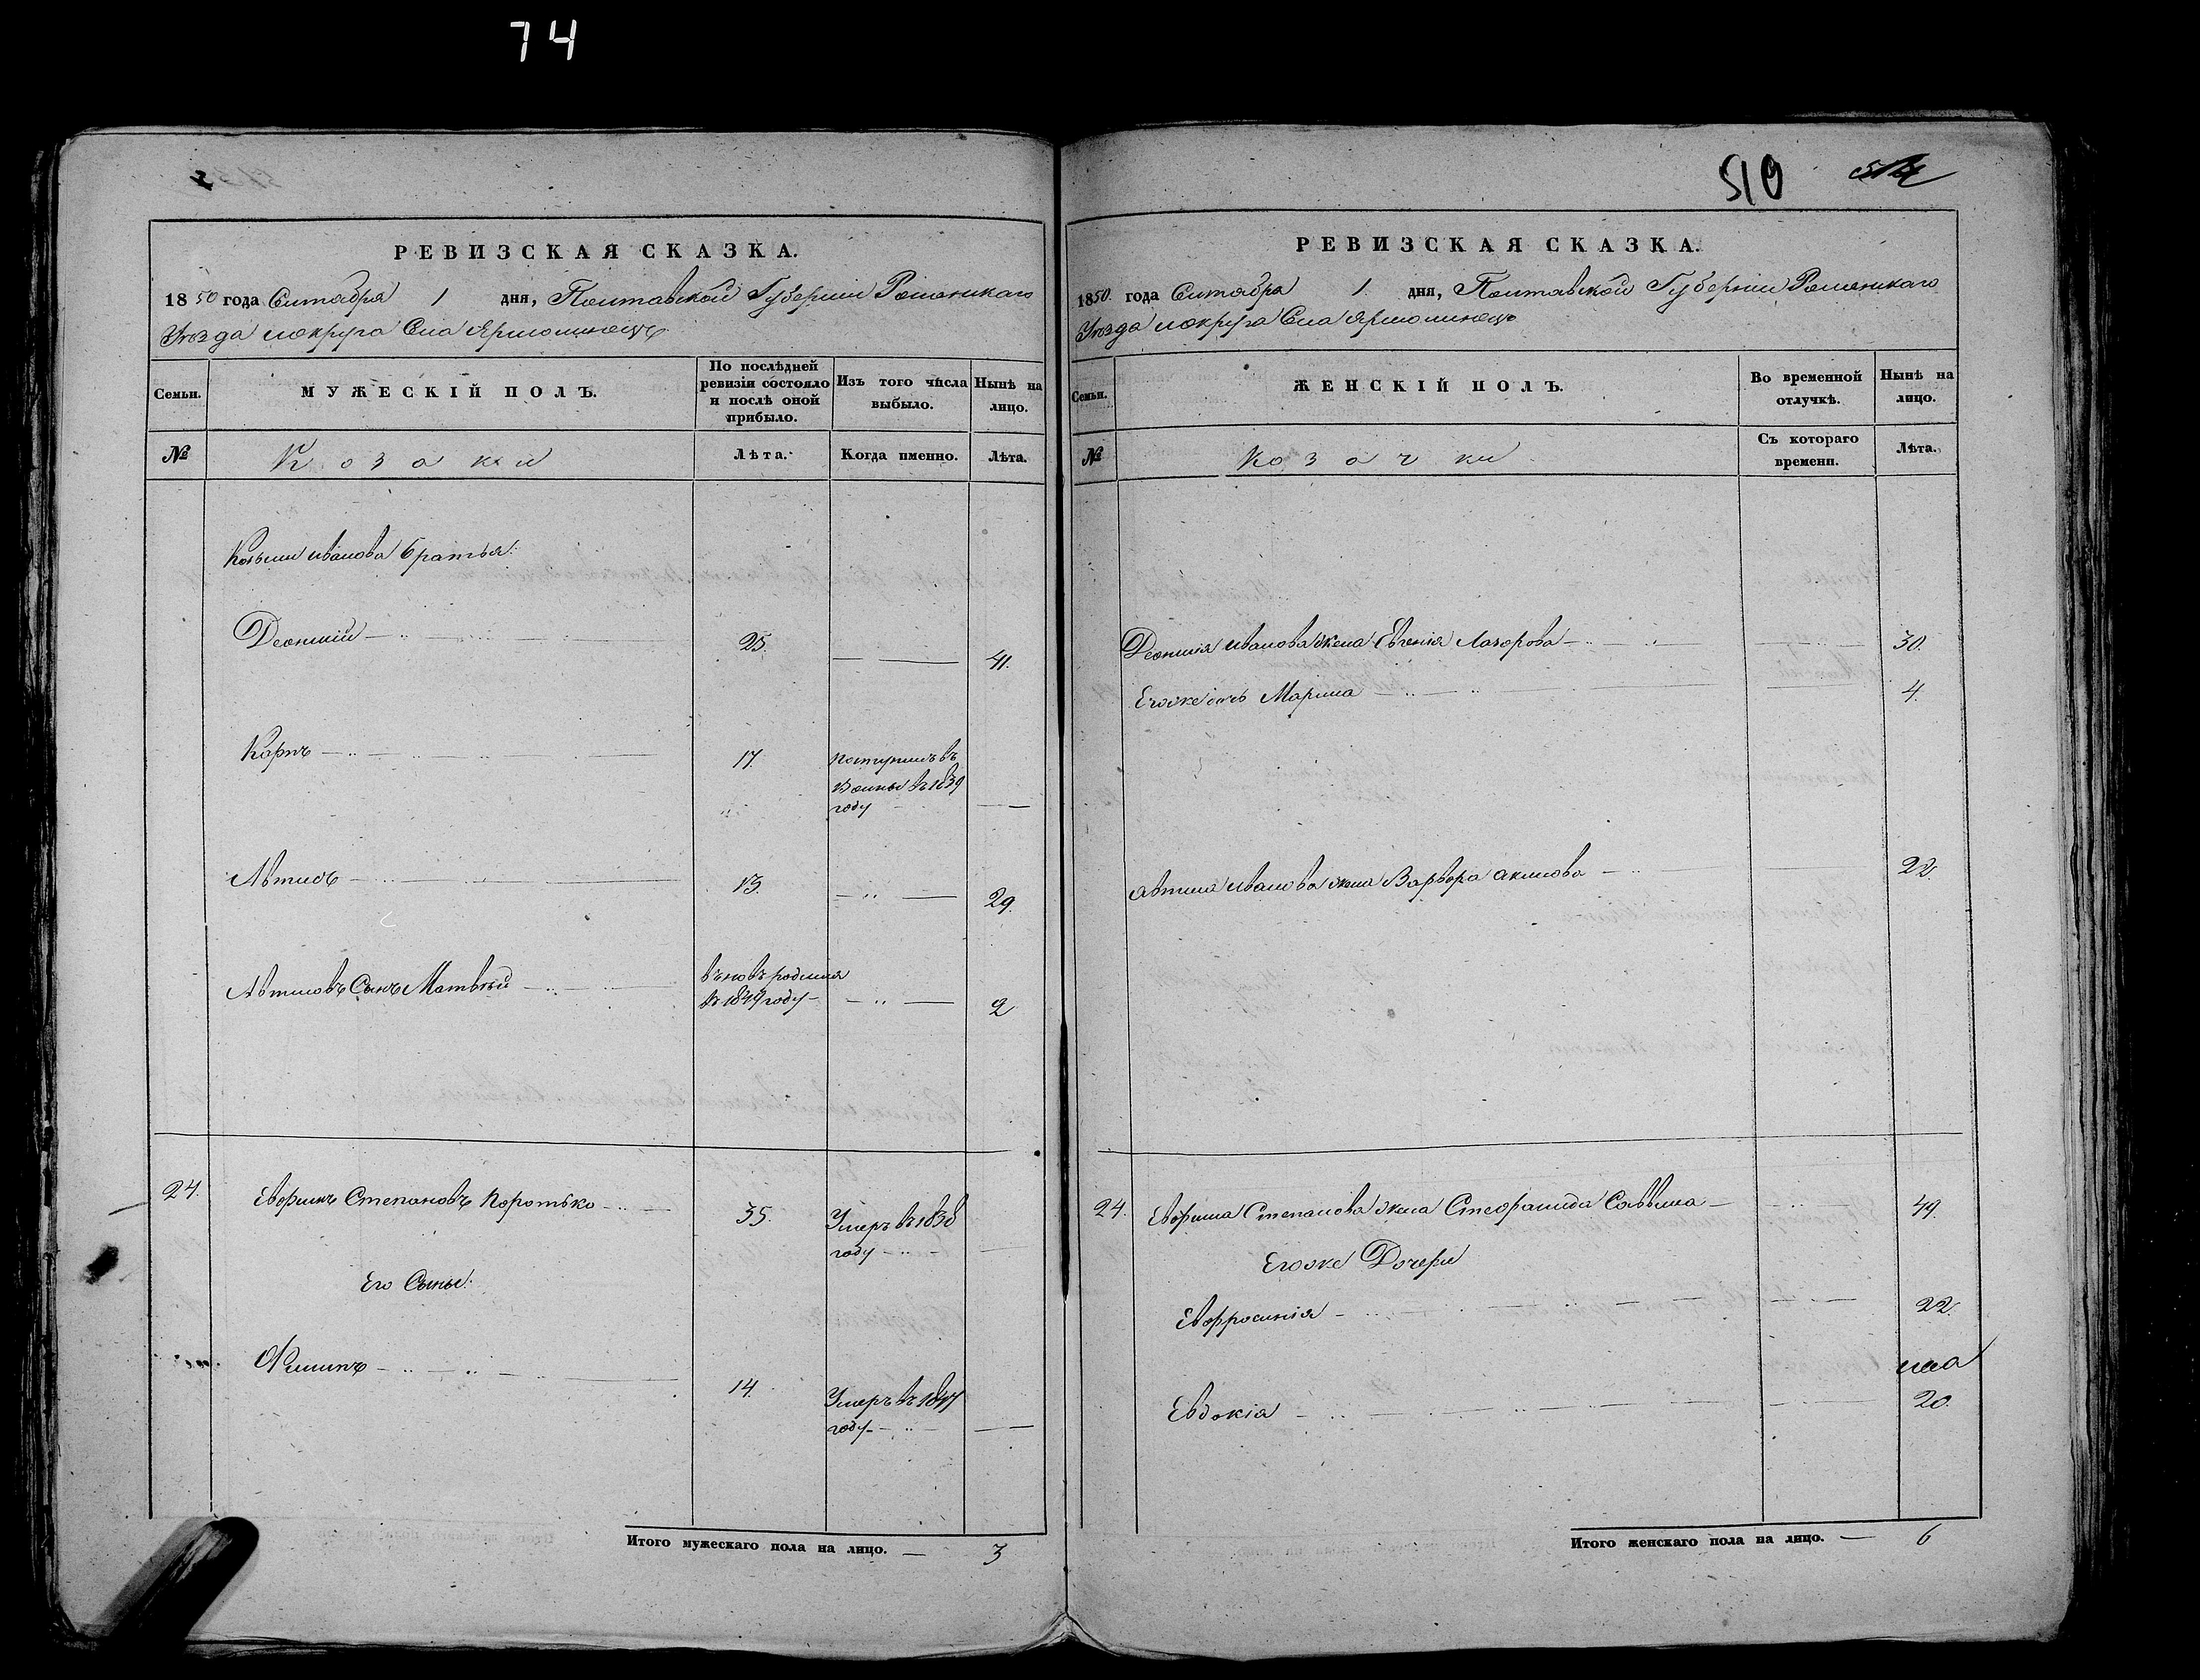 74
РЕВИЗСКАЯ СКАЗКА.
1850 года Сентября 1 дня, Полтавской Губернии Роменскаго
Уѣзда и округа Села Ярмолинецъ
Семьи.
МУЖЕСКІЙ ПОЛЪ.
По послѣдней ревизіи состояло и послѣ оной прибыло.
Изъ того числа выбыло.
Нынѣ на лицо.
№
Козаки
Лѣта.
Когда именно.
Лѣта.
Ивалова братья:
Деонисій 25. 41.
Карпъ 17. поступилъ въ
въ 1839
году
Автилъ 13. 29.
Автиловъ Сынъ Матвѣй вновь родился
въ 1849 году 2
24. Евфимъ Степановъ Коротько 35. Умеръ въ 1838
году
Его Сынъе:
Филипъ 14. Умеръ въ 1847
году
Итого мужескаго пола на лицо. 3
510
РЕВИЗСКАЯ СКАЗКА.
1850. года Сентября 1. дня, Полтавской Губерніи Роменскаго
Уѣзда и округа Села Ярмолинецъ
Семьи.
ЖЕНСКІЙ ПОЛЪ.
Во временной отлучкѣ.
Нынѣ на лицо.
№
Козачки
Съ котораго времени.
Лѣта.
Деонисія Иванова жена Евгенія Лазорова 30.
Егоже дочь Марина 4.
Иванова жена Варвора Акимова 22.
24. Евфима Степанова жена Стефанида Саввина 49.
Егоже Дочери
Евфросинія 22.
Евдокія 20.
Итого женскаго пола на лицо. 6